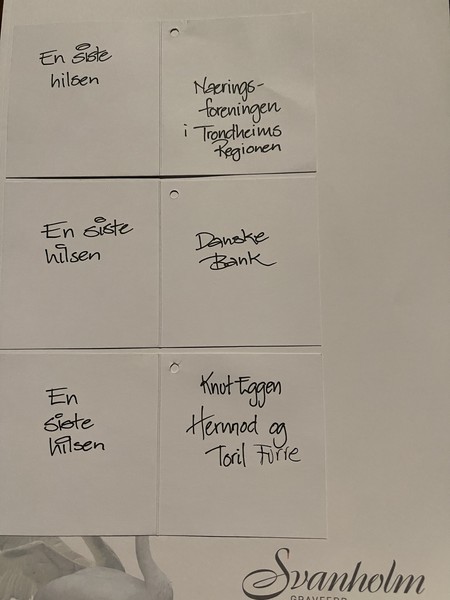 En siste
hilsen
Nærings-
foreningen
i Trondheims
Regionen
En siste
hilsen
Danske
Bank
En
siste
hilsen
Knut Eggen
Hermod og
Toril Furre
Svanholm
GRAVFERD